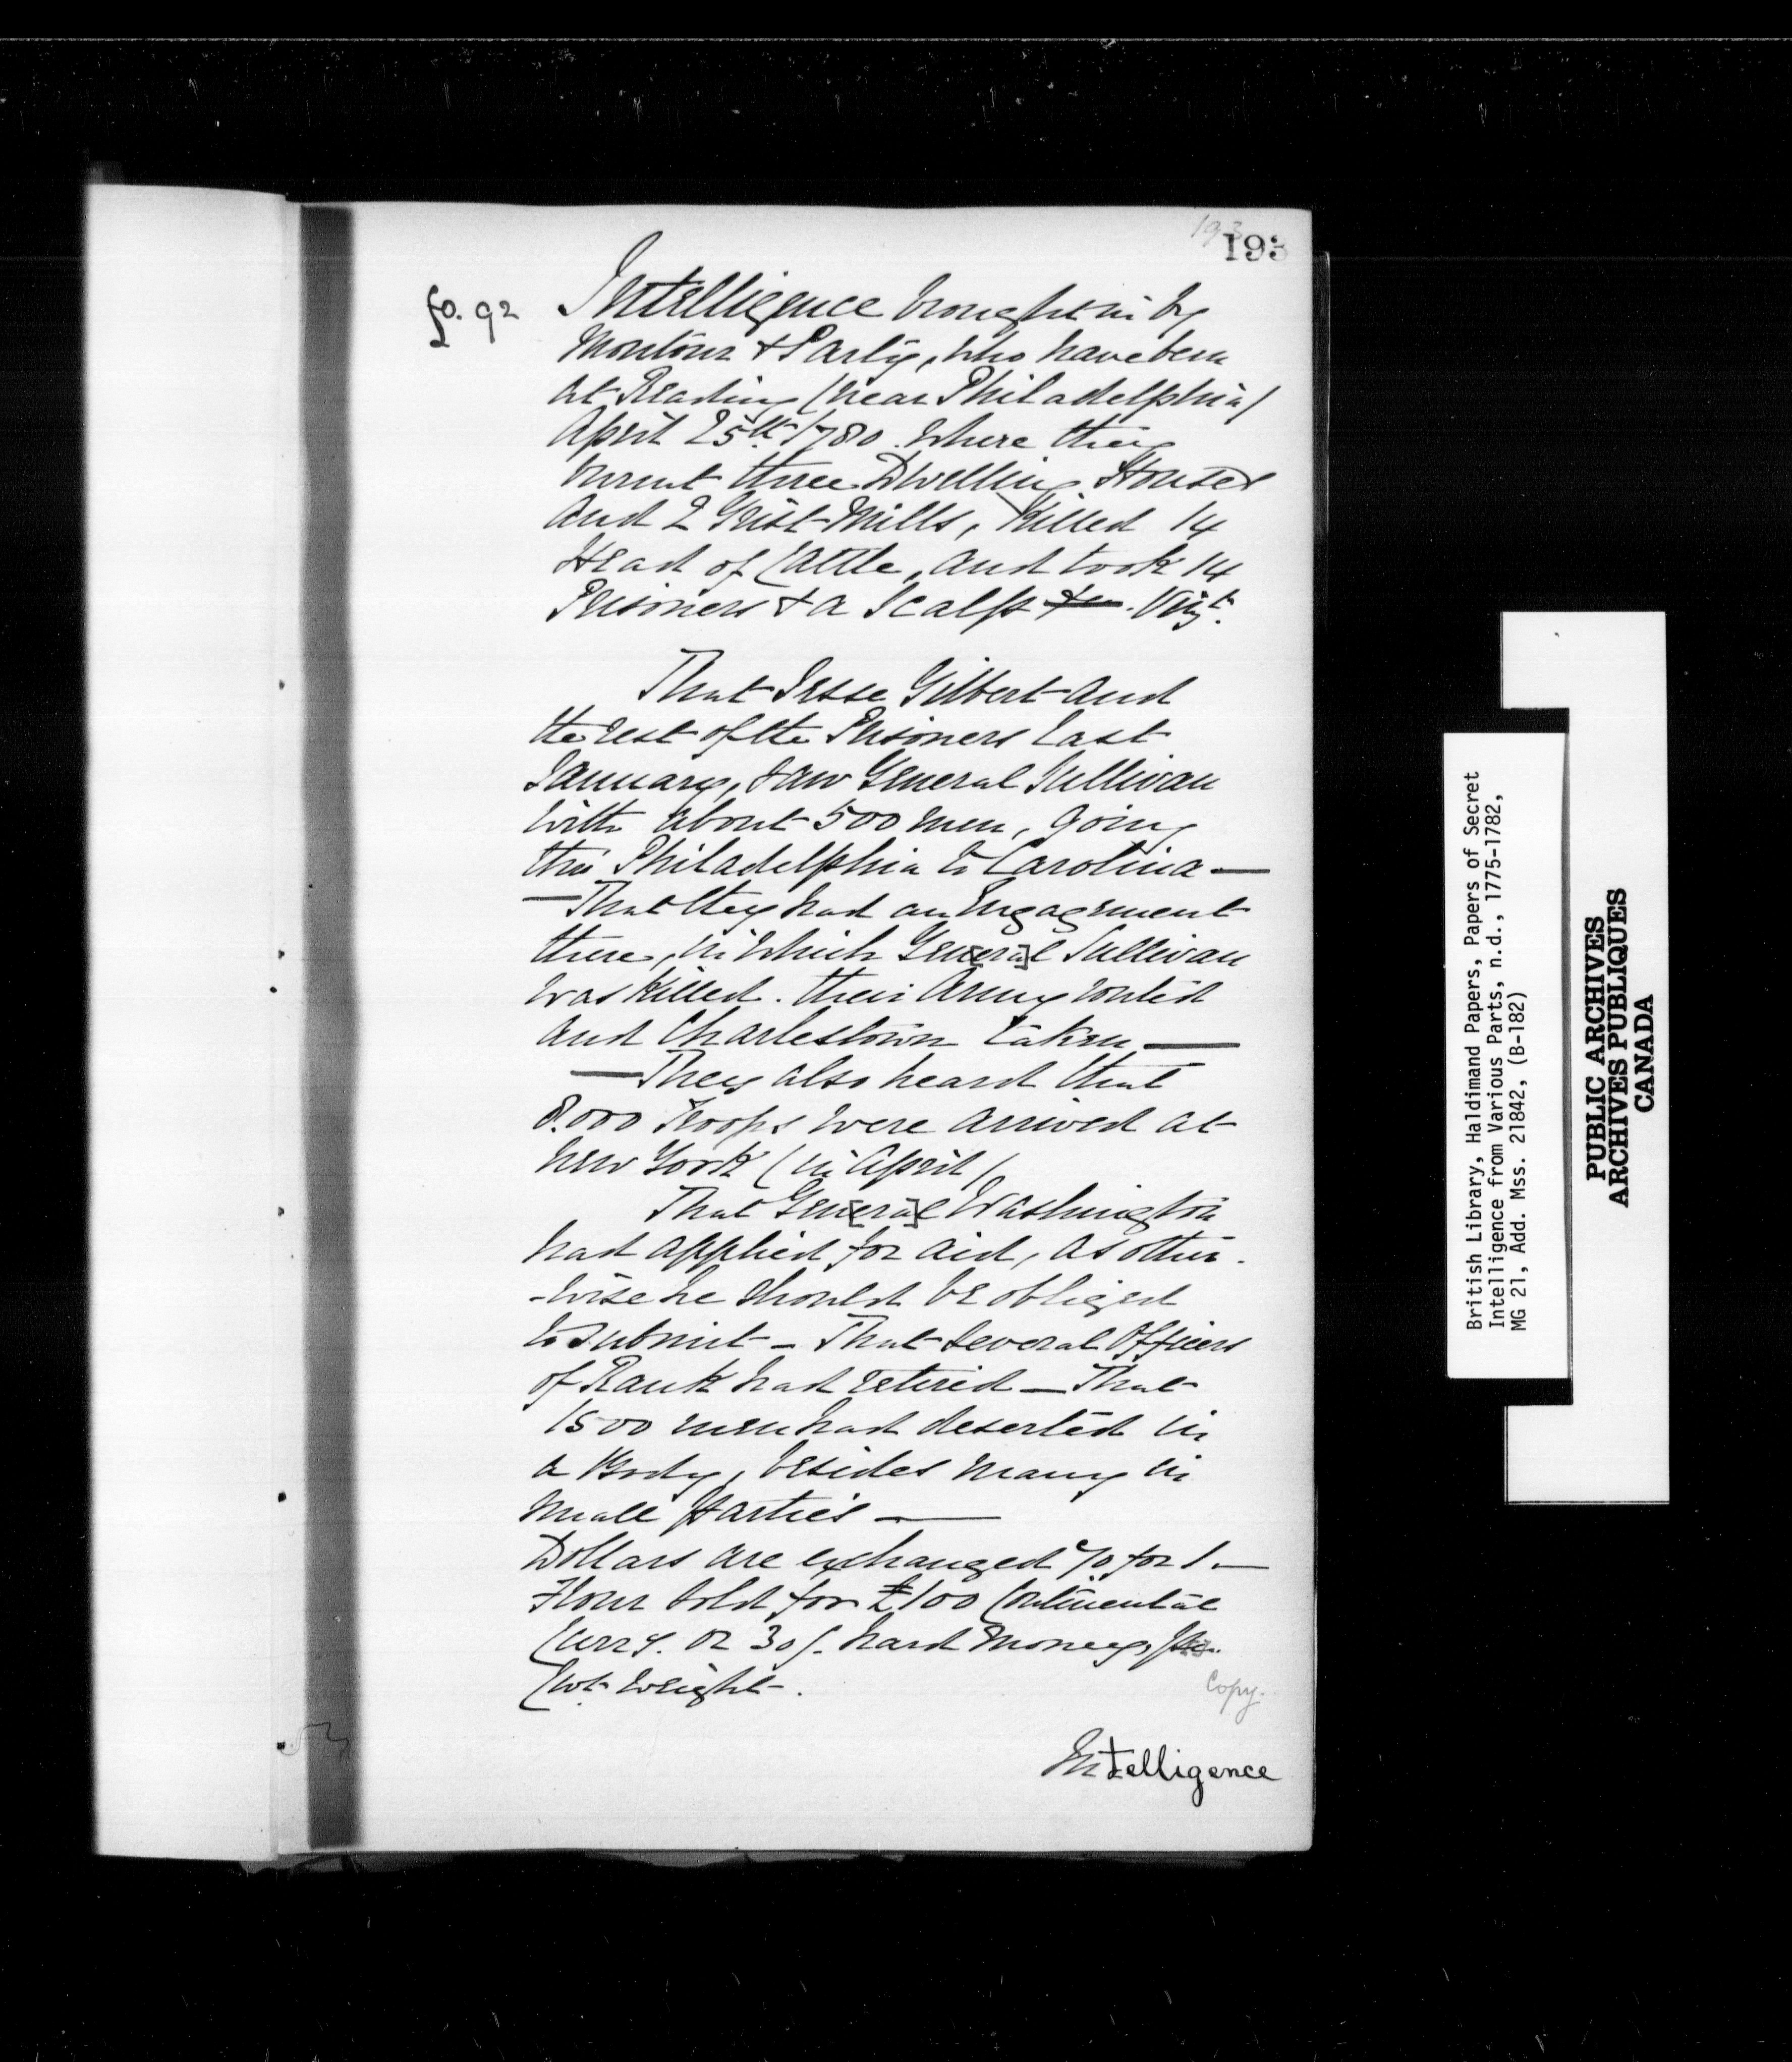 193
193
fo. 92
Intelligence brought in by
Montour & Party, who have been
at Reading (near Philadelphia)
April 25th 1780. Where they
burnt three Dwelling Houses
and 2 Grist Mills, Killed 14
Head of Cattle, and took 14
Prisoners & a Scalp Vizt.
That Jesse Gilbert and
the rest of the Prisoners last
January, saw General Sullivan
with about 500 men, going
thro' Philadelphia to Carolina —
— That they had an Engagement
there, in which Gen[era]l Sullivan
was Killed. their Army routed
and Charlestown taken —
— They also heard that
8.000 Troops were arrived at
New York (in April)
That Gen[era]l Washington
had applied for aid, as other-
-wise he should be obliged
to submit — That several Officers
of Rank had retired — That
1500 men had deserted in
a Body, besides many in
small parties —
Dollars are exchanged 70 for 1 —
Flour sold for £100 Continental
Curry. or 30/. hard Money, per
Cwt. weight.
Copy.
Intelligence
British Library, Haldimand Papers, Papers of Secret
Intelligence from Various Parts, n.d., 1775-1782,
MG 21, Add. Mss. 21842, (B-182)
PUBLIC ARCHIVES
ARCHIVES PUBLIQUES
CANADA